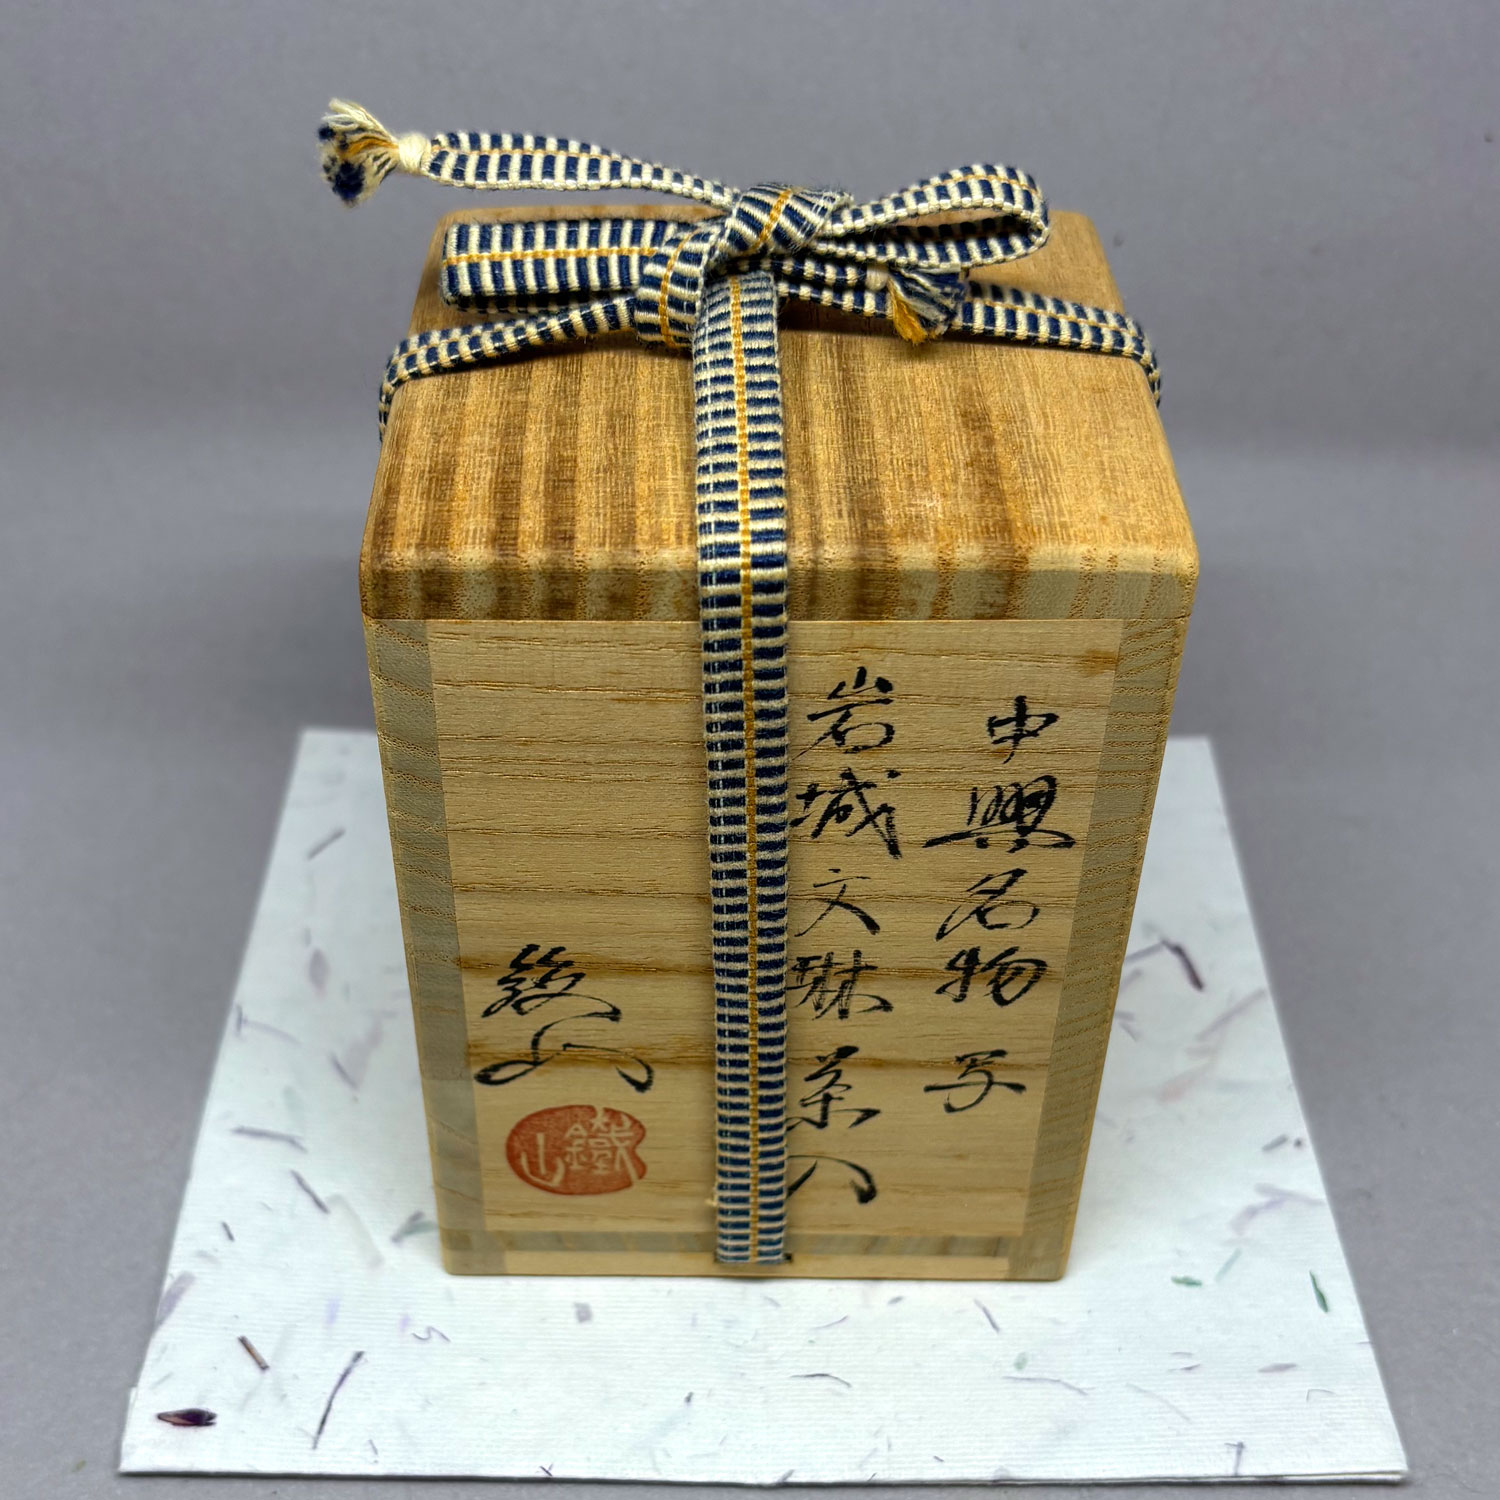 中興名物写
岩城文琳茶入
鐵山
鐵山